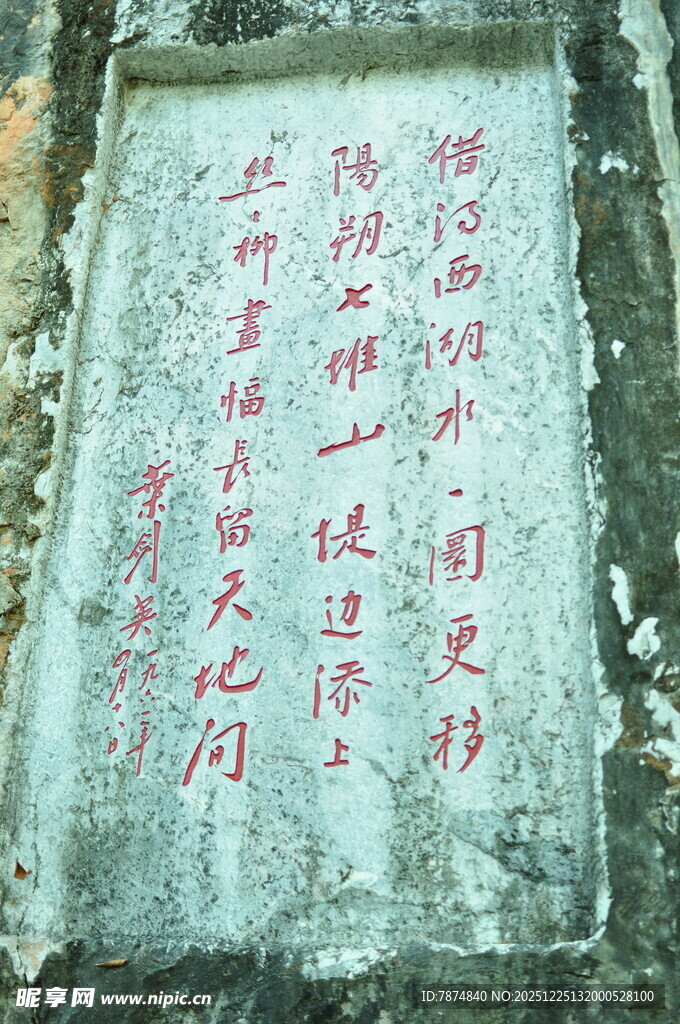 借得西湖水一圜更移
陽朔七堆山堤边添上
丝〻柳畫幅長留天地间
葉剑英一九六二年
九月十八日
昵享网 www.nipic.cn
ID:7874840 NO:20251225132000528100